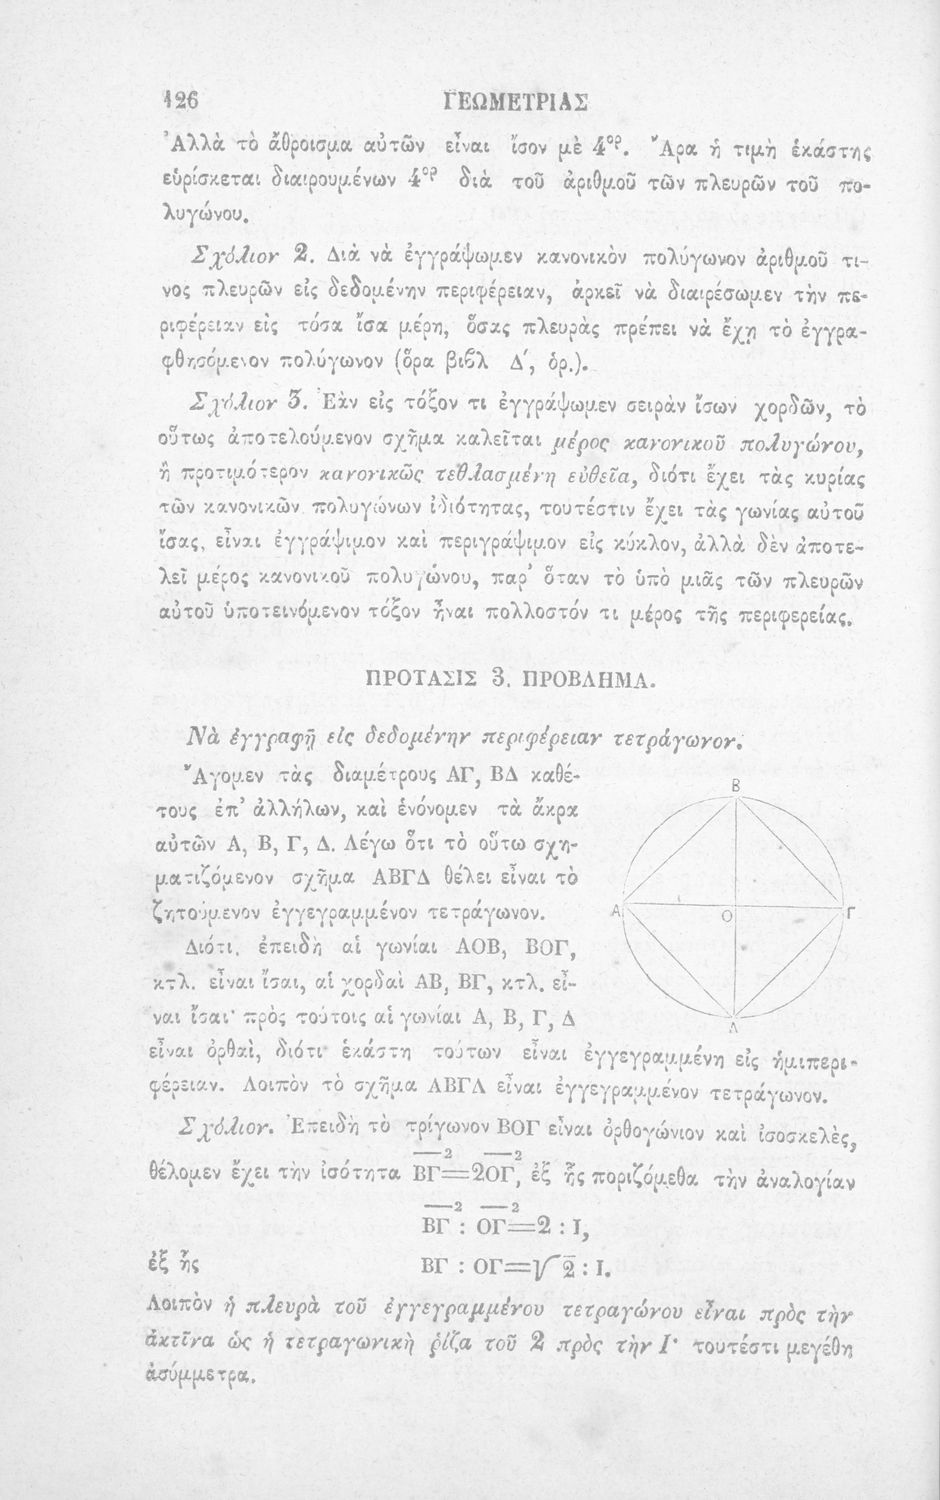 126 ΓΕΩΜΕΤΡΙΑΣ
Ἀλλὰ τὸ ἄθροισμα αὐτῶν εἶναι ἴσον μὲ 4ορ. Ἄρα ἡ τιμὴ ἑκάστης
εὑρίσκεται διαιρουμένων 4ορ διὰ τοῦ ἀριθμοῦ τῶν πλευρῶν τοῦ πο-
λυγώνου.
Σχόλιον 2. Διὰ νὰ ἐγγράψωμεν κανονικὸν πολύγωνον ἀριθμοῦ τι-
νος πλευρῶν εἰς δεδομένην περιφέρειαν, ἀρκεῖ νὰ διαιρέσωμεν τὴν πε-
ριφέρειαν εἰς τόσα ἴσα μέρη, ὅσας πλευρὰς πρέπει νὰ ἔχῃ τὸ ἐγγρα-
φθησόμενον πολύγωνον (ὅρα βιβλ Δ', ὁρ.).
Σχόλιον 3. Ἐὰν εἰς τόξον τι ἐγγράψωμεν σειρὰν ἴσων χορδῶν, τὸ
οὕτως ἀποτελούμενον σχῆμα καλεῖται μέρος κανονικοῦ πολυγώνου,
ἢ προτιμότερον κανονικῶς τεθλασμένη εὐθεῖα, διότι ἔχει τὰς κυρίας
τῶν κανονικῶν πολυγώνων ἰδιότητας, τουτέστιν ἔχει τὰς γωνίας αὐτοῦ
ἴσας, εἶναι ἐγγράψιμον καὶ περιγράψιμον εἰς κύκλον, ἀλλὰ δὲν ἀποτε-
λεῖ μέρος κανονικοῦ πολυγώνου, παρ' ὅταν τὸ ὑπὸ μιᾶς τῶν πλευρῶν
αὐτοῦ ὑποτεινόμενον τόξον ἦναι πολλοστόν τι μέρος τῆς περιφερείας.
ΠΡΟΤΑΣΙΣ 3. ΠΡΟΒΛΗΜΑ.
Νὰ ἐγγραφῇ εἰς δεδομένην περιφέρειαν τετράγωνον.
Ἄγομεν τὰς διαμέτρους ΑΓ, ΒΔ καθέ-
τους ἐπ' ἀλλήλων, καὶ ἑνόνομεν τὰ ἄκρα
αὐτῶν Α, Β, Γ, Δ. Λέγω ὅτι τὸ οὕτω σχη-
ματιζόμενον σχῆμα ΑΒΓΔ θέλει εἶναι τὸ
ζητούμενον ἐγγεγραμμένον τετράγωνον.
Διότι, ἐπειδὴ αἱ γωνίαι ΑΟΒ, ΒΟΓ,
κτλ. εἶναι ἴσαι, αἱ χορδαὶ ΑΒ, ΒΓ, κτλ. εἶ-
ναι ἴσαι· πρὸς τούτοις αἱ γωνίαι Α, Β, Γ, Δ
Β
Α
Ο
Γ
Δ
εἶναι ὀρθαὶ, διότι ἑκάστη τούτων εἶναι ἐγγεγραμμένη εἰς ἡμιπερι-
φέρειαν. Λοιπὸν τὸ σχῆμα ΑΒΓΔ εἶναι ἐγγεγραμμένον τετράγωνον.
Σχόλιον. Ἐπειδὴ τὸ τρίγωνον ΒΟΓ εἶναι ὀρθογώνιον καὶ ἰσοσκελὲς,
θέλομεν ἔχει τὴν ἰσότητα ΒΓ²=2ΟΓ², ἐξ ἧς ποριζόμεθα τὴν ἀναλογίαν
ΒΓ² : ΟΓ²=2 : 1,
ἐξ ἧς ΒΓ : ΟΓ=√2 : 1.
Λοιπὸν ἡ πλευρὰ τοῦ ἐγγεγραμμένου τετραγώνου εἶναι πρὸς τὴν
ἀκτῖνα ὡς ἡ τετραγωνικὴ ῥίζα τοῦ 2 πρὸς τὴν 1· τουτέστι μεγέθη
ἀσύμμετρα.